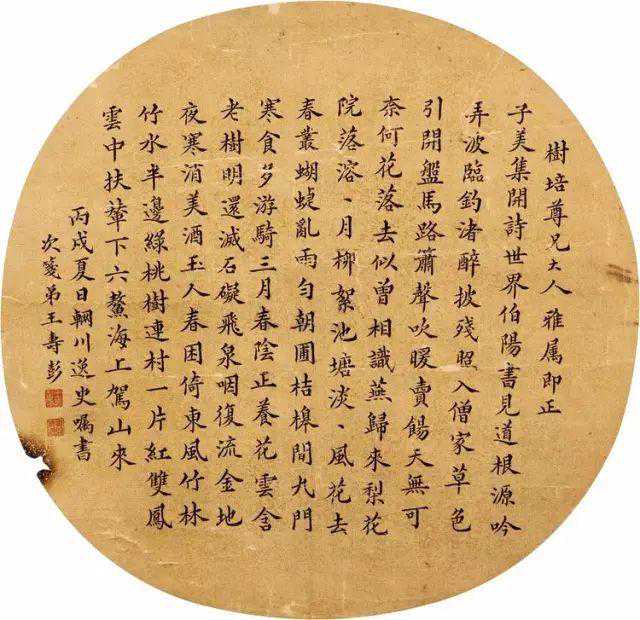 樹培尊兄大人雅属即正
子美集開詩世界伯陽書見道根源吟
弄波臨釣渚醉披殘照入僧家草色
引開盤馬路簫聲吹暖賣餳天無可
奈何花落去似曾相識燕歸來梨花
院落溶丶月柳絮池塘淡丶風花去
春叢蝴蜨亂雨勻朝圃桔槔閒九門
寒食多游騎三月春陰正養花雲含
老樹明還滅石礙飛泉咽復流金地
夜寒消美酒玉人春困倚東風竹林
竹水半邊綠桃樹連村一片紅雙鳳
雲中扶輦下六鰲海上駕山來
丙戌夏日輞川逸史囑書
次箋弟王壽彭